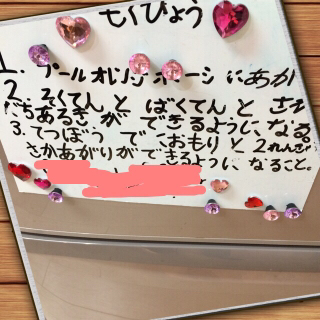 もくひょう
1. プールオレンジ ーシ にあか
2. そくてんと ばくてんと さか
だちあるきが できるようになる
3. てつぼうで こおもりと 2れんぞ
さかあがりができるように なること。